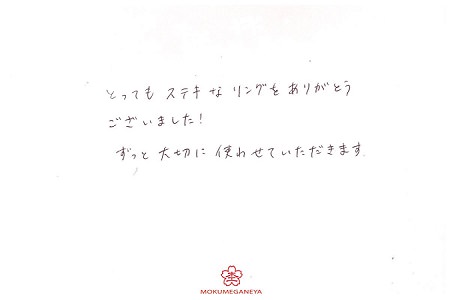 とってもステキなリングをありがとう
ございました!
ずっと大切に使わせていただきます.
MOKUMEGANEYA